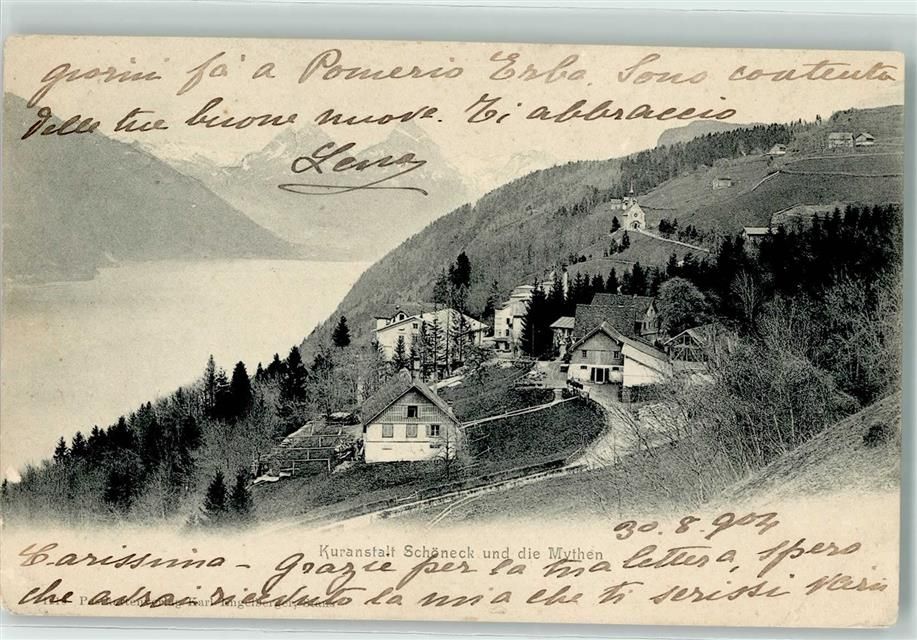 giorni fà a Pomerio Erba. Sono contenta
delle tue buone nuove. Ti abbraccio
Lena
Kuranstalt Schöneck und die Mythen
30.8.904
Carissima - Grazie per la tua lettera, spero
che avrai ricevuto la mia che ti scrissi varii
Karl Engelberger, Stans